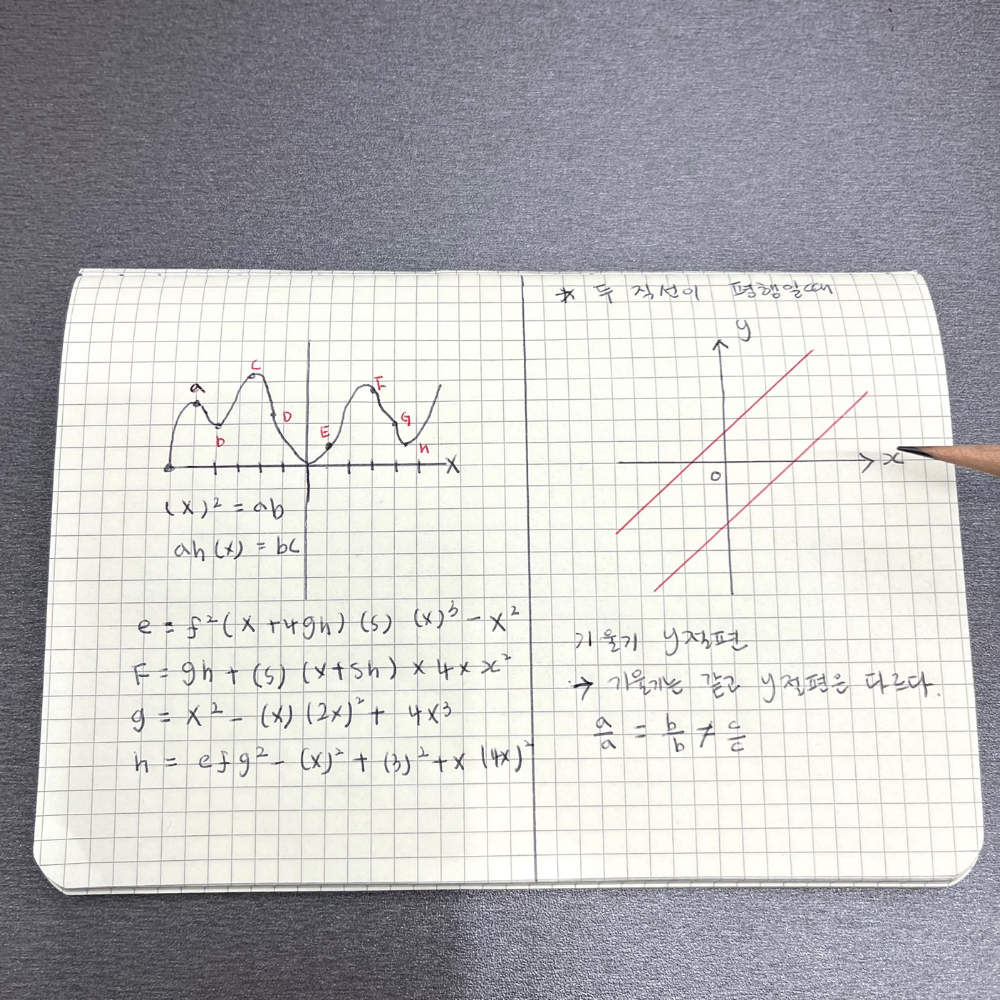 a
C
b
D
E
F
G
h
X
(x)² = ab
ah(x) = bc
e = f²(x + 4gh) (5) (x)³ - x²
F = gh + (5) (x+5h) × 4 × x²
g = x² - (x) (2x)² + 4x³
h = efg² - (x)² + (3)² + x (4x)²
* 두 직선이 평행일때
y
x
0
기울기 y절편
→ 기울기는 같고 y절편은 다르다.
a/a = b/b ≠ c/c